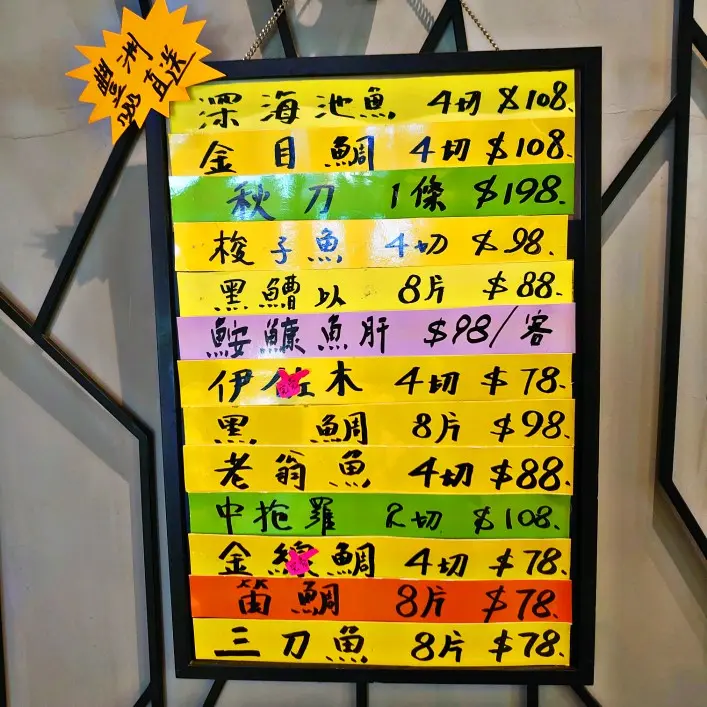 豐洲
直送
深海池魚 4切 $108.
金目鯛 4切 $108.
秋刀 1條 $198.
梭子魚 4切 $98.
黑鰽以 8片 $88.
鮟鱇魚肝 $98/客
伊佐木 4切 $78.
黑鯛 8片 $98.
老翁魚 4切 $88.
中拖羅 2切 $108.
金線鯛 4切 $78.
笛鯛 8片 $78.
三刀魚 8片 $78.